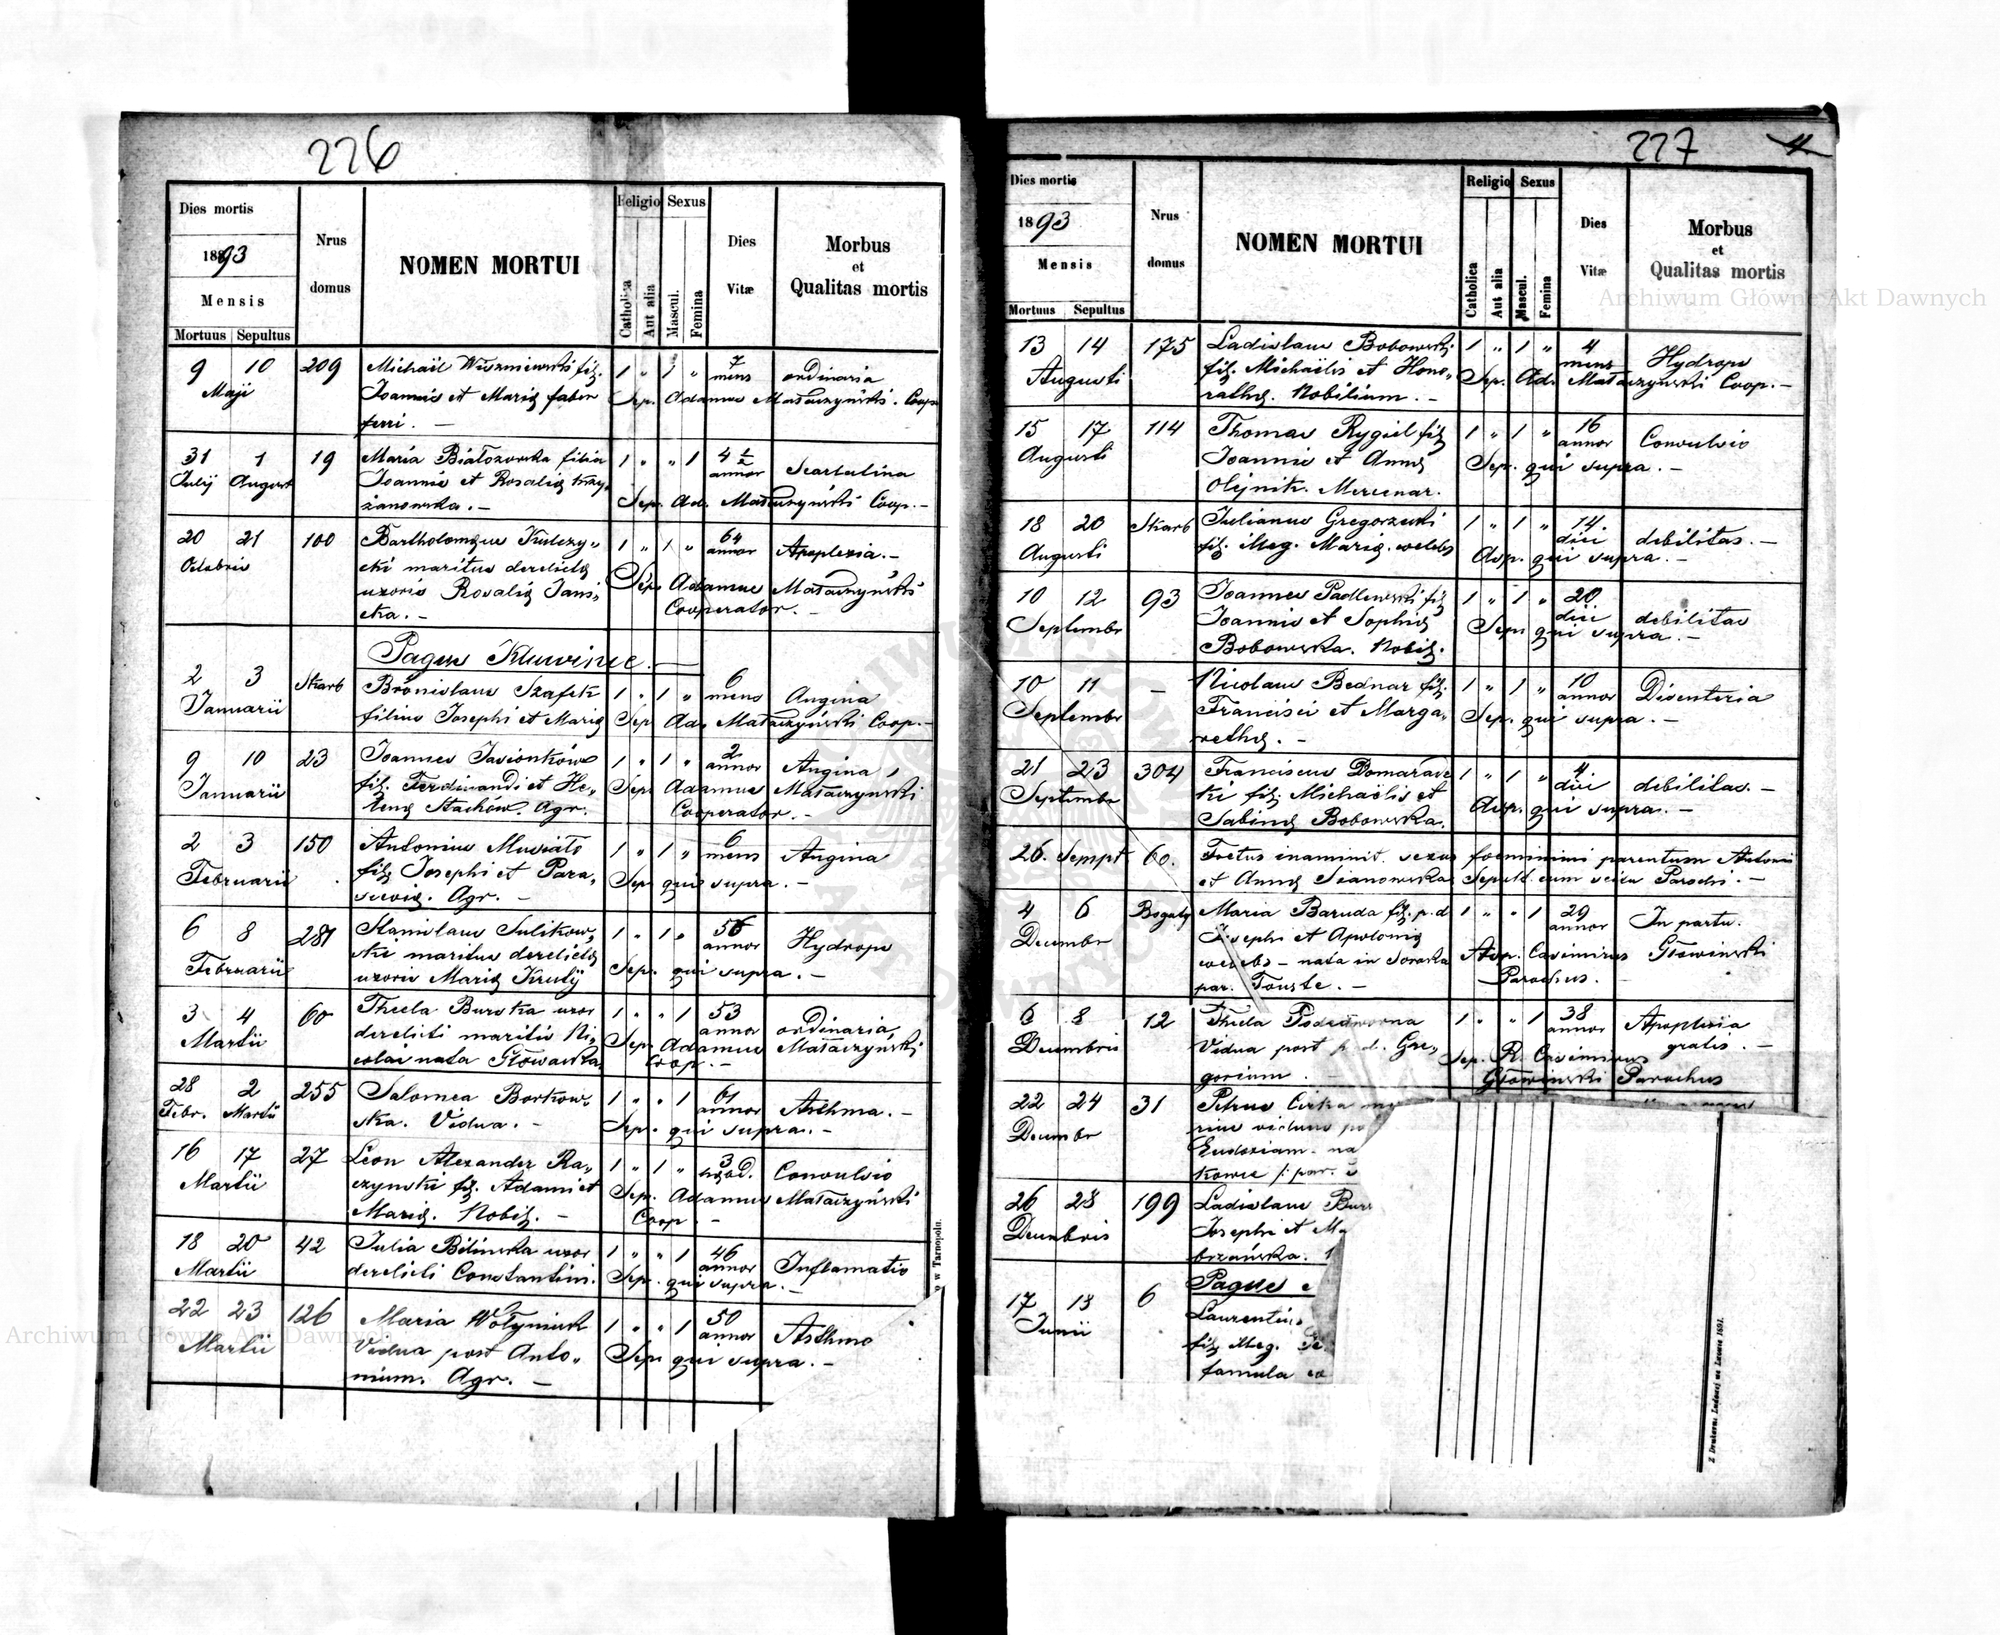 226
Dies mortis
1893
Mensis
Mortuus Sepultus
Nrus domus
NOMEN MORTUI
Religio
Catholica
Aut alia
Sexus
Mascul.
Femina
Dies Vitæ
Morbus et Qualitas mortis
9 10 209 Michaël Wiszniewski fil. 1 " 1 " 7 mens ordinaria
Maji Joannis et Mariæ faber Sep. Adamus Mataczyński Coop.
ferri. –
31 1 19 Maria Białozorska filia 1 " " 1 4 1/2 annor Scarlatina
Julij August Joannis et Rosaliæ Krzy„ Sep. Ad. Mataczyński Coop. –
żanowska. –
20 21 100 Bartholomæus Kulczy„ 1 " 1 " 64 annor Apoplexia. –
Octobris cki maritus derelictæ Sep. Adamus Mataczyński
uxoris Rosaliæ Jani„ Cooperator. –
cka. –
Pagus Kluwińce. –
2 3 Skarb Bronislaus Szafek 1 " 1 " 6 mens Angina
Januarii filius Josephi et Mariæ Sep. Ad. Mataczyński Coop. –
9 10 23 Joannes Jasionków 1 " 1 " 2 annor Angina
Januarii fil. Ferdinandi et He„ Sep. Adamus Mataczyński
lenæ Stachów. Agr. Cooperator. –
2 3 150 Antonius Musiało 1 " 1 " 6 mens Angina
Februarii fil. Josephi et Para„ Sep. qui supra. –
sceviæ. Agr. –
6 8 281 Stanislaus Sulikow„ 1 " 1 " 56 annor Hydrops
Februarii ski maritus derelictæ Sep. qui supra. –
uxoris Mariæ Kruty
3 4 60 Thecla Burska uxor 1 " " 1 53 annor ordinaria
Martii derelicti mariti Ni„ Sep. Adamus Mataczyński
colai nata Głowacka Coop. –
28 2 255 Salomea Borkow„ 1 " " 1 61 annor Asthma. –
Febr. Martii ska. Vidua. – Sep. qui supra. –
16 17 27 Leon Alexander Ra„ 1 " 1 " 3 Convulsio
Martii czynski fil. Adami et Sep. Adamus Mataczyński
Mariæ. Nobil. – Coop. –
18 20 42 Julia Bilińska uxor 1 " " 1 46 annor Inflamatio
Martii derelicti Constantini. Sep. qui supra. –
22 23 126 Maria Wołyniuk 1 " " 1 50 annor Asthma
Martii Vidua post Anto„ Sep. qui supra. –
nium. Agr. –
w Tarnopolu.
227
Dies mortis
1893
Mensis
Mortuus Sepultus
Nrus domus
NOMEN MORTUI
Religio
Catholica
Aut alia
Sexus
Mascul.
Femina
Dies Vitæ
Morbus et Qualitas mortis
13 14 175 Ladislaus Bobowski 1 " 1 " 4 mens Hydrops
Augusti fil. Michaëlis et Hono„ Sep. Ad. Mataczyński Coop. –
rathæ. Nobilium. –
15 17 114 Thomas Rygiel fil 1 " 1 " 16 annor Convulsio
Augusti Joannis et Annæ Sep. qui supra. –
Olejnik. Mercenar.
18 20 Skarb Julianus Gregorzewski 1 " 1 " 14. diei debilitas. –
Augusti fil. illeg. Mariæ. coelebs Asp. qui supra. –
10 12 93 Joannes Padlewski fil 1 " 1 " 20 diei debilitas
Septembr Joannis et Sophiæ Sep. qui supra. –
Bobowska. Nobil.
10 11 – Nicolaus Bednar fil. 1 " 1 " 10 annor Disenteria
Septembr Francisci et Marga„ Sep. qui supra. –
rethæ. –
21 23 304 Franciscus Domarade 1 " 1 " 4 diei debilitas. –
Septembr ki fil. Michaëlis et Asp. qui supra. –
Sabinæ Bobowska.
26. Sempt 60. Foetus inaminit. sexus foeminini parentum Antonii
et Annæ Sianowska Sepult. cum scitu Parochi. –
4 6 Bogaty Maria Baruda fil. p. d 1 " " 1 29 annor In partu.
Decembr Josephi et Apoloniæ Asp. Casimirus Głowiński
coelebs – nata in Sorocka Parochus. –
par. Touste. –
6 8 12 Thecla Podedworna 1 " " 1 38 annor Apoplexia
Decembris Vidua post p. d. Gre„ gratis. –
gorium. – Sep. R. Casimirus
Głowiński Parochus
22 24 31 Petrus Cirka
Decembr rine viduus po
Eudoxiam. na
kowce /: par.
26 28 199 Ladislaus Bur
Decembris Josephi et Ma
brzańska.
Pagus
17 18 6 Laurentius
Junii fil. illeg.
famula
Z Drukarni Ludowej we Lwowie 1891.
Archiwum Główne Akt Dawnych
Archiwum Główne Akt Dawnych